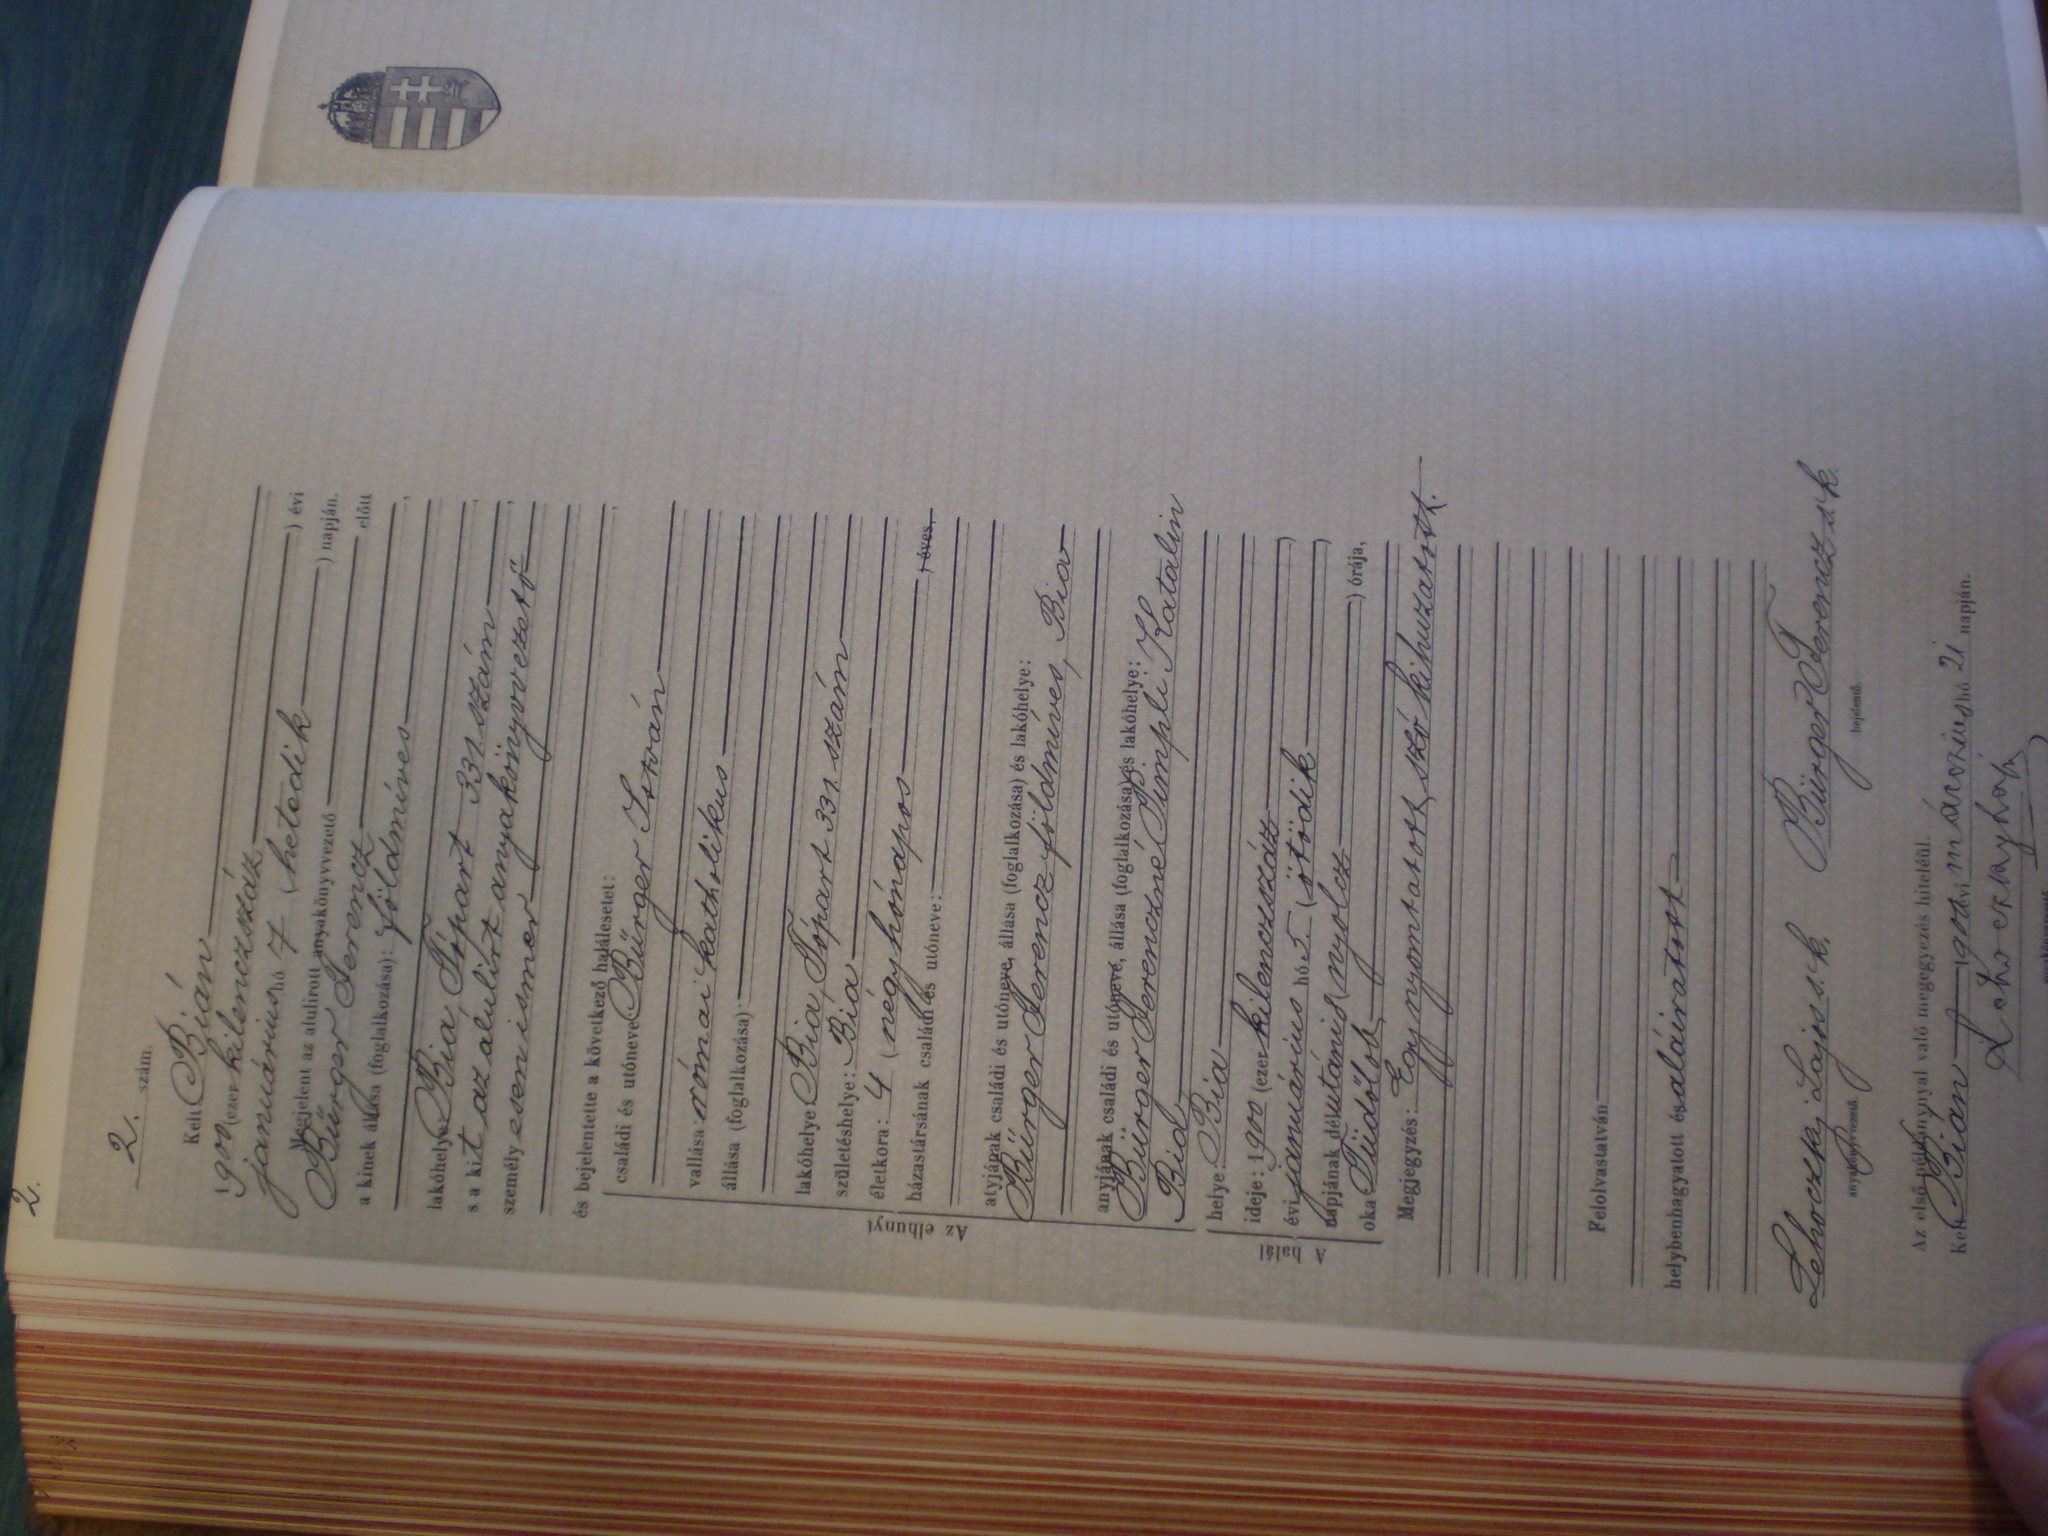 2.
2. szám.
Kelt Bián
1900 (ezer kilenczszáz ) évi
januárius hó 7 (hetedik ) napján.
Megjelent az alulirott anyakönyvvezető előtt
Bürger Ferencz
a kinek állása (foglalkozása): földmíves,
lakóhelye: Bia Tópart 331. szám,
s a kit az alulirt anyakönyvvezető
személyesen ismer,
és bejelentette a következő halálesetet:
Az elhunyt
családi és utóneve Bürger István
vallása: római katholikus
állása (foglalkozása):
lakóhelye Bia, Tópart 331. szám
születéshelye: Bia
életkora: 4 (négy hónapos ) éves,
házastársának családi és utóneve:
atyjának családi és utóneve, állása (foglalkozása) és lakóhelye:
Bürger Ferencz földmíves, Bia
anyjának családi és utóneve, állása (foglalkozása) és lakóhelye:
Bürger Ferencné Pimpli Katalin
Bia
A halál
helye: Bia
ideje: 1900 (ezer kilenczszáz )
évi januárius hó 5. (ötödik )
napjának délutáni 8 (nyolcz ) órája,
oka Tüdőlob
Megjegyzés: Egy nyomtatott szó kihuzatott.
Felolvastatván
helybenhagyatott és aláiratott
Lehoczky Lajos s. k. Bürger Ferencz s. k.
anyakönyvvezető. bejelentő.
Az első példánynyal való megegyezés hiteléül.
Kelt Bián 1900 évi márczius hó 21 napján.